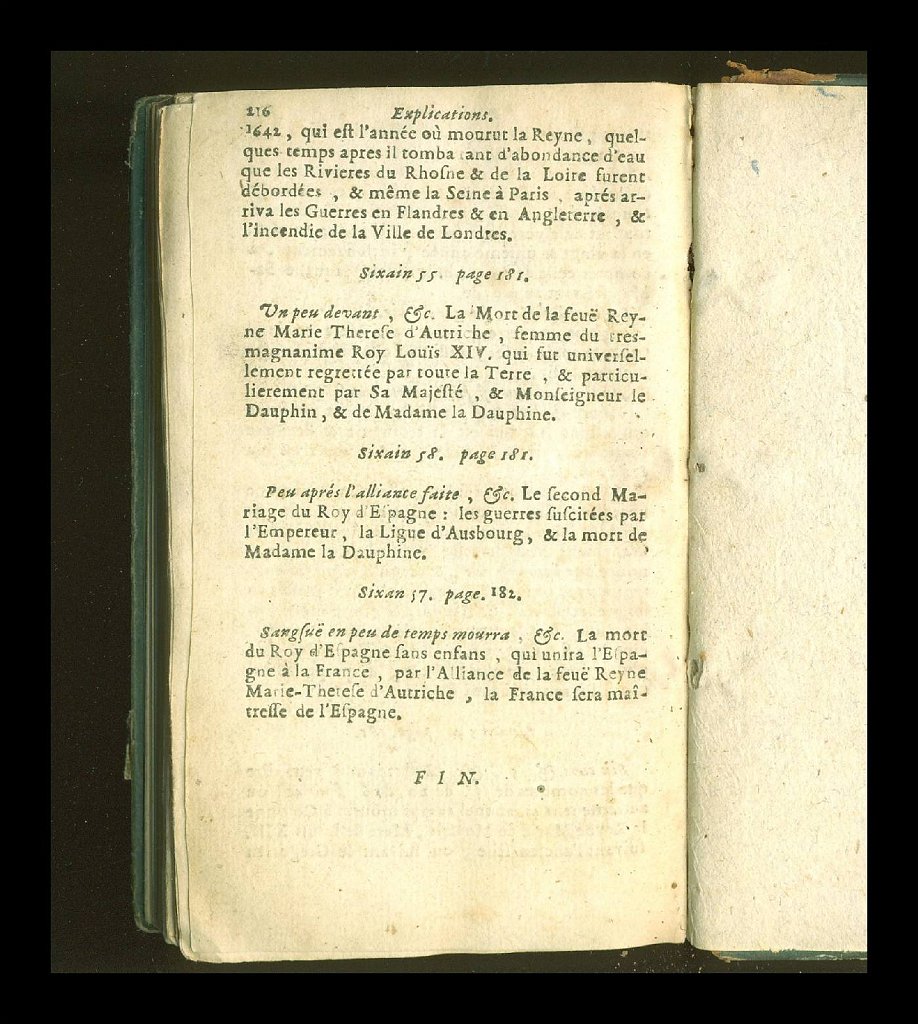 216 Explications.
1642, qui eſt l'année où mourut la Reyne, quel-
ques temps apres il tomba tant d'abondance d'eau
que les Rivieres du Rhoſne & de la Loire furent
débordées, & même la Seine à Paris, aprés ar-
riva les Guerres en Flandres & en Angleterre, &
l'incendie de la Ville de Londres.
Sixain 55. page 181.
Un peu devant, &c. La Mort de la feuë Rey-
ne Marie Thereſe d'Autriche, femme du tres-
magnanime Roy Louïs XIV. qui fut univerſel-
lement regrettée par toute la Terre, & particu-
lierement par Sa Majeſté, & Monſeigneur le
Dauphin, & de Madame la Dauphine.
Sixain 58. page 181.
Peu aprés l'alliance faite, &c. Le ſecond Ma-
riage du Roy d'Eſpagne : les guerres ſuſcitées par
l'Empereur, la Ligue d'Ausbourg, & la mort de
Madame la Dauphine.
Sixan 57. page. 182.
Sangſuë en peu de temps mourra, &c. La mort
du Roy d'Eſpagne ſans enfans, qui unira l'Eſpa-
gne à la France, par l'Alliance de la feuë Reyne
Marie-Thereſe d'Autriche, la France ſera maî-
treſſe de l'Eſpagne.
F I N.